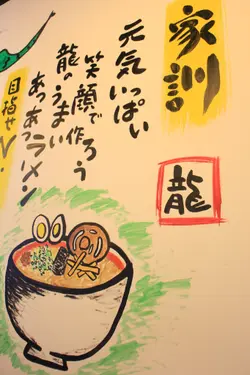 家訓
龍
元気いっぱい
笑顔で作ろう
龍のうまい
あつあつラーメン
目指せV.